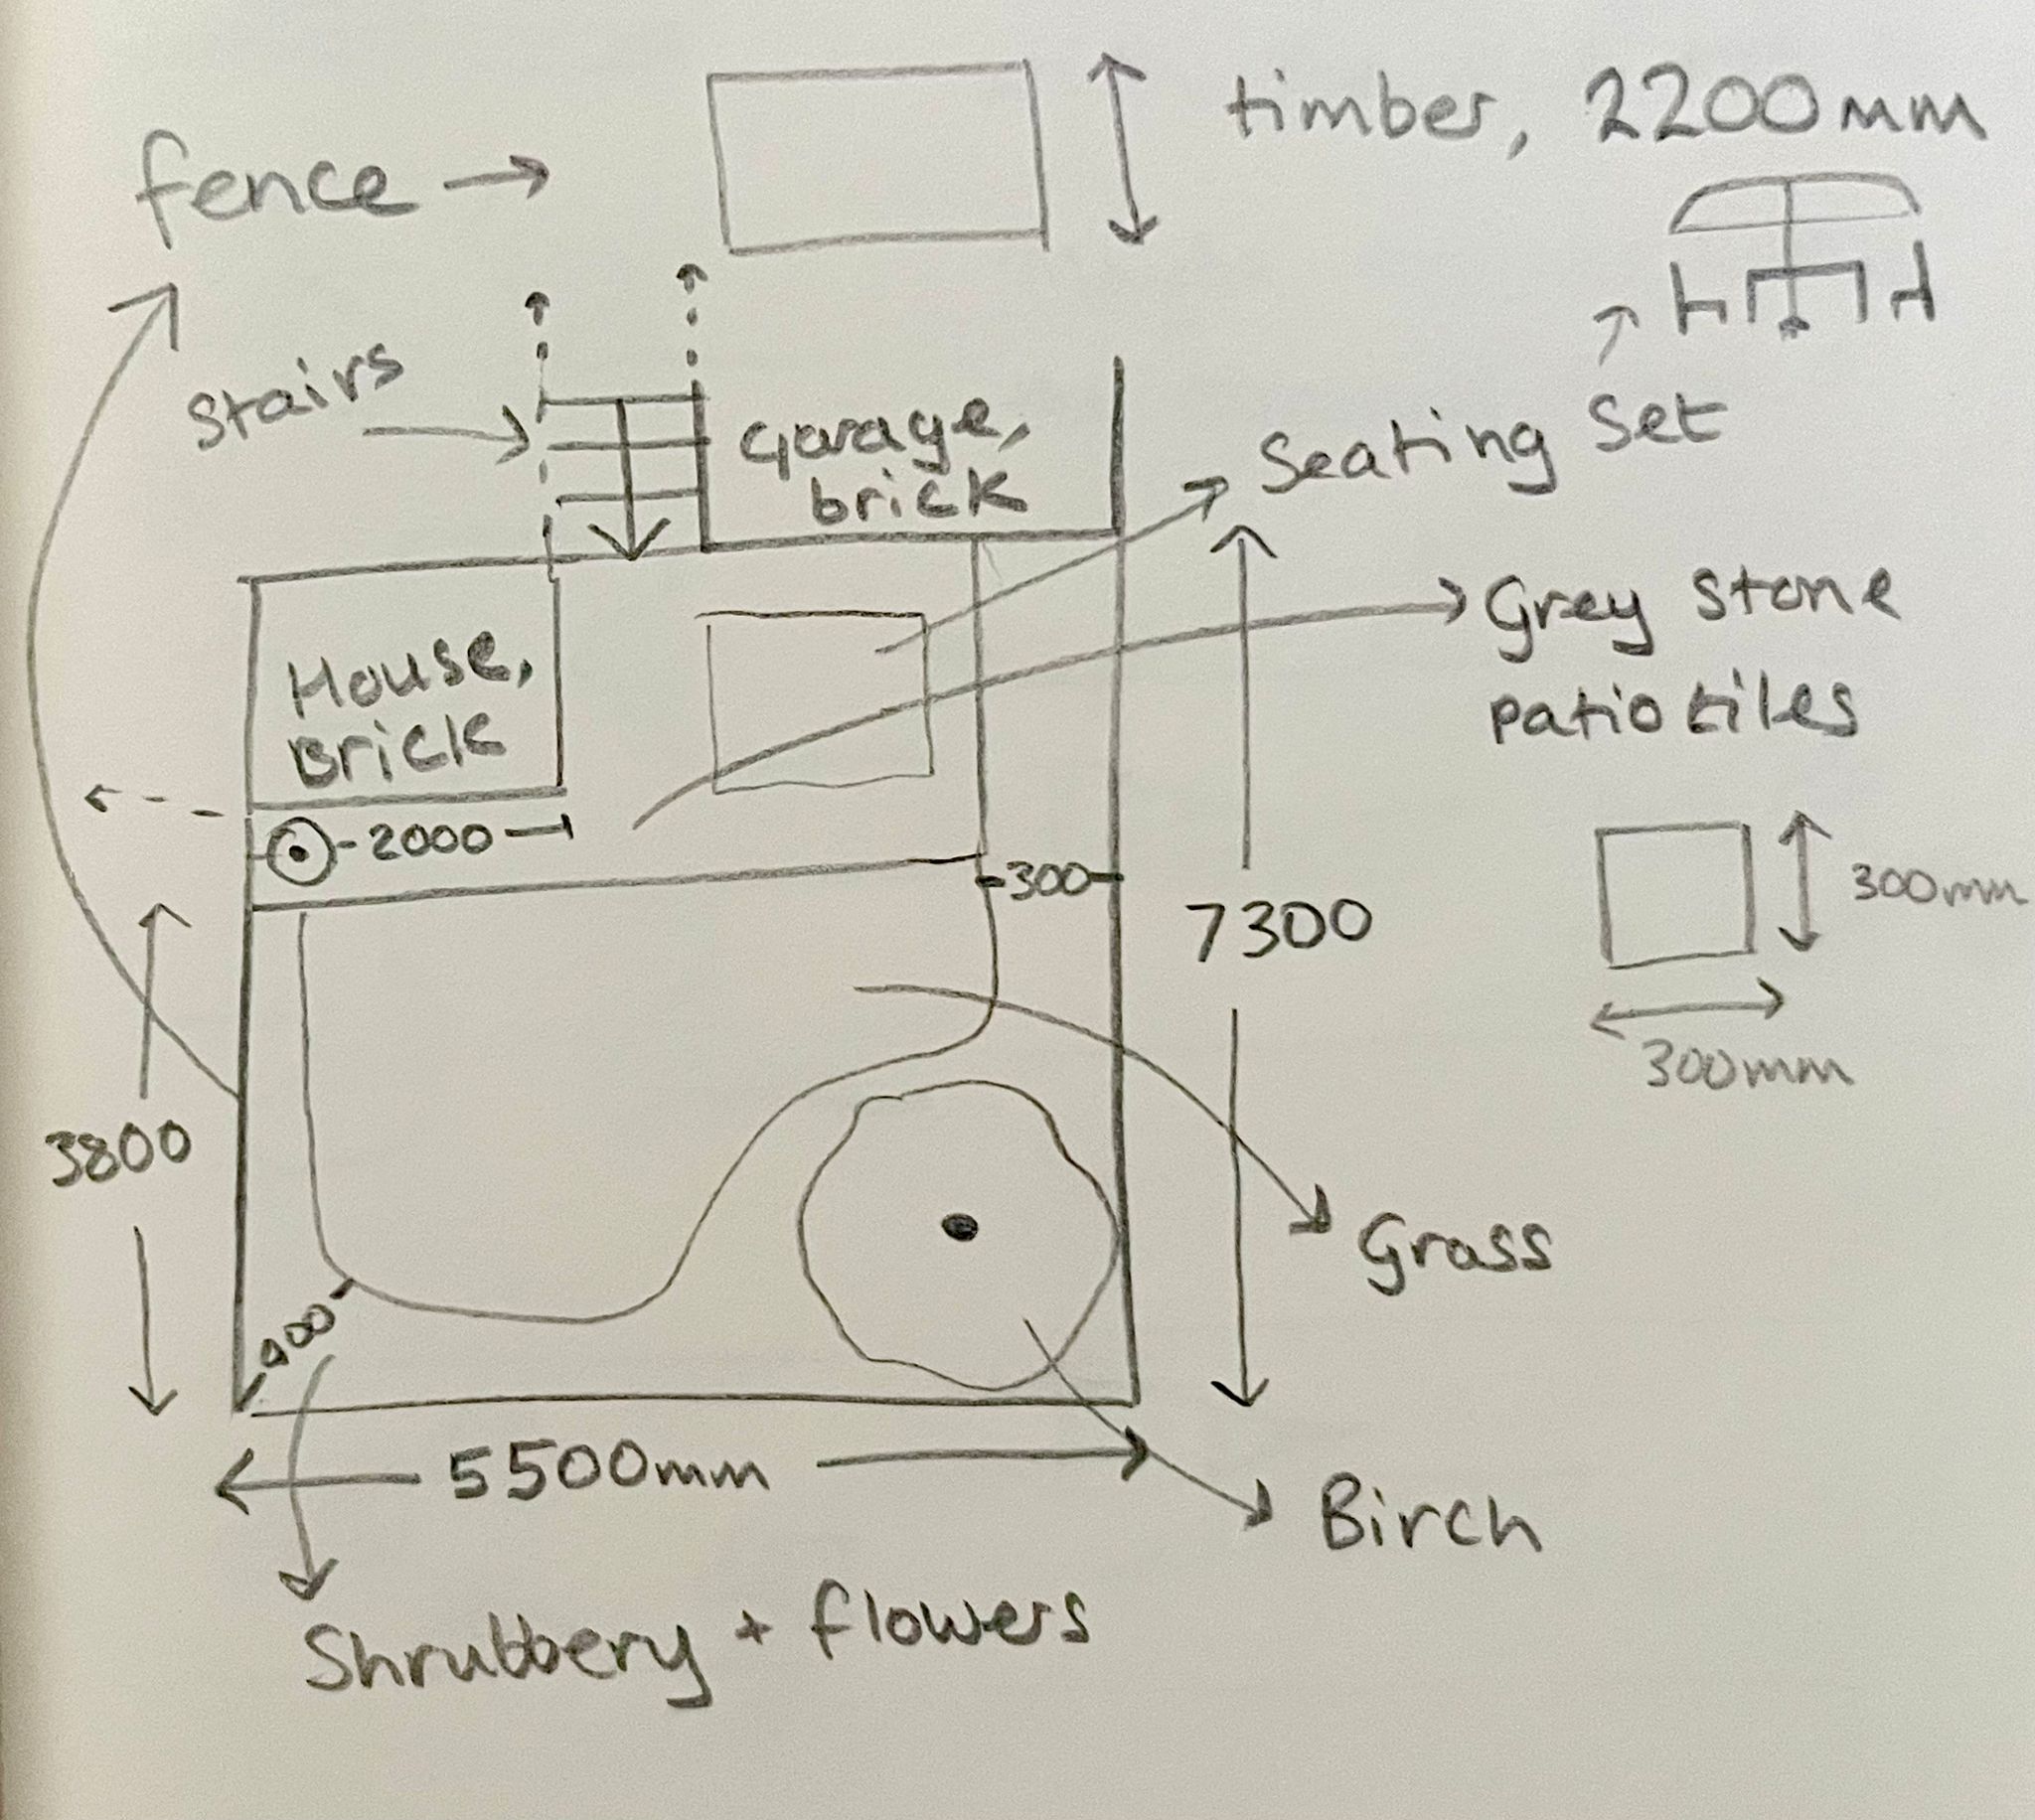 fence
timber, 2200mm
Stairs
Garage,
brick
Seating Set
Grey stone
patio tiles
House,
Brick
2000
300
7300
300mm
300mm
3800
Grass
900
5500mm
Birch
Shrubbery + flowers